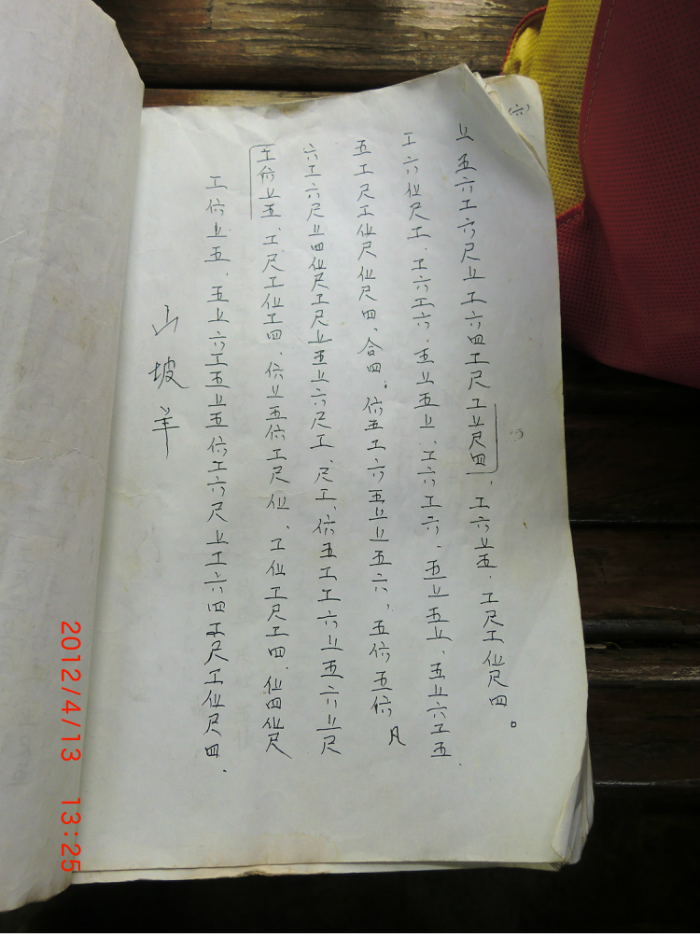 山坡羊
工伬上五、五上六工五上五伬工六尺上工六四工尺工仩尺四.
工伬上五、工尺工仩工四、伬上五伬工尺仩、工仩工尺工四、仩四仩尺
六工六尺上四仩尺工尺上五上六尺工、尺工、伬五工工六上五六上尺
五工尺工仩尺仩尺四、合四。伬五工六五上上五六、五伬五伬凡
工六仩尺工、工六工六、五上五上、工六工六、五上五上、五上六工五.
上五六工六尺上工六四工尺工上尺四、工六上五、工尺工仩尺四。
(六)
2012/4/13 13:25